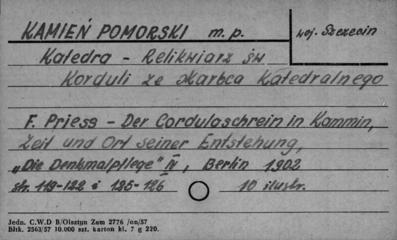 KAMIEŃ POMORSKI m.p. woj. Szczecin
Katedra - Relikwiarz św
Korduli ze skarbca Katedralnego
F. Priess - Der Cordulaschrein in Kammin,
Zeit und Ort seiner Entstehung,
„Die Denkmalpflege" IV, Berlin 1902
str. 119-122 i 125-126 10 ilustr.
Jedn. C.W.D B/Olsztyn Zam 2776 /on/57
Bltk. 2563/57 10.000 szt. karton kl. 7 g 220.